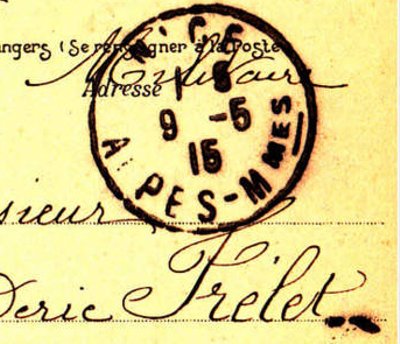 angers (Se renseigner à la Poste
Militaire
Adresse
NICE
1 8
9 -5
15
ALPES-MMES
sieur
deric Frélet